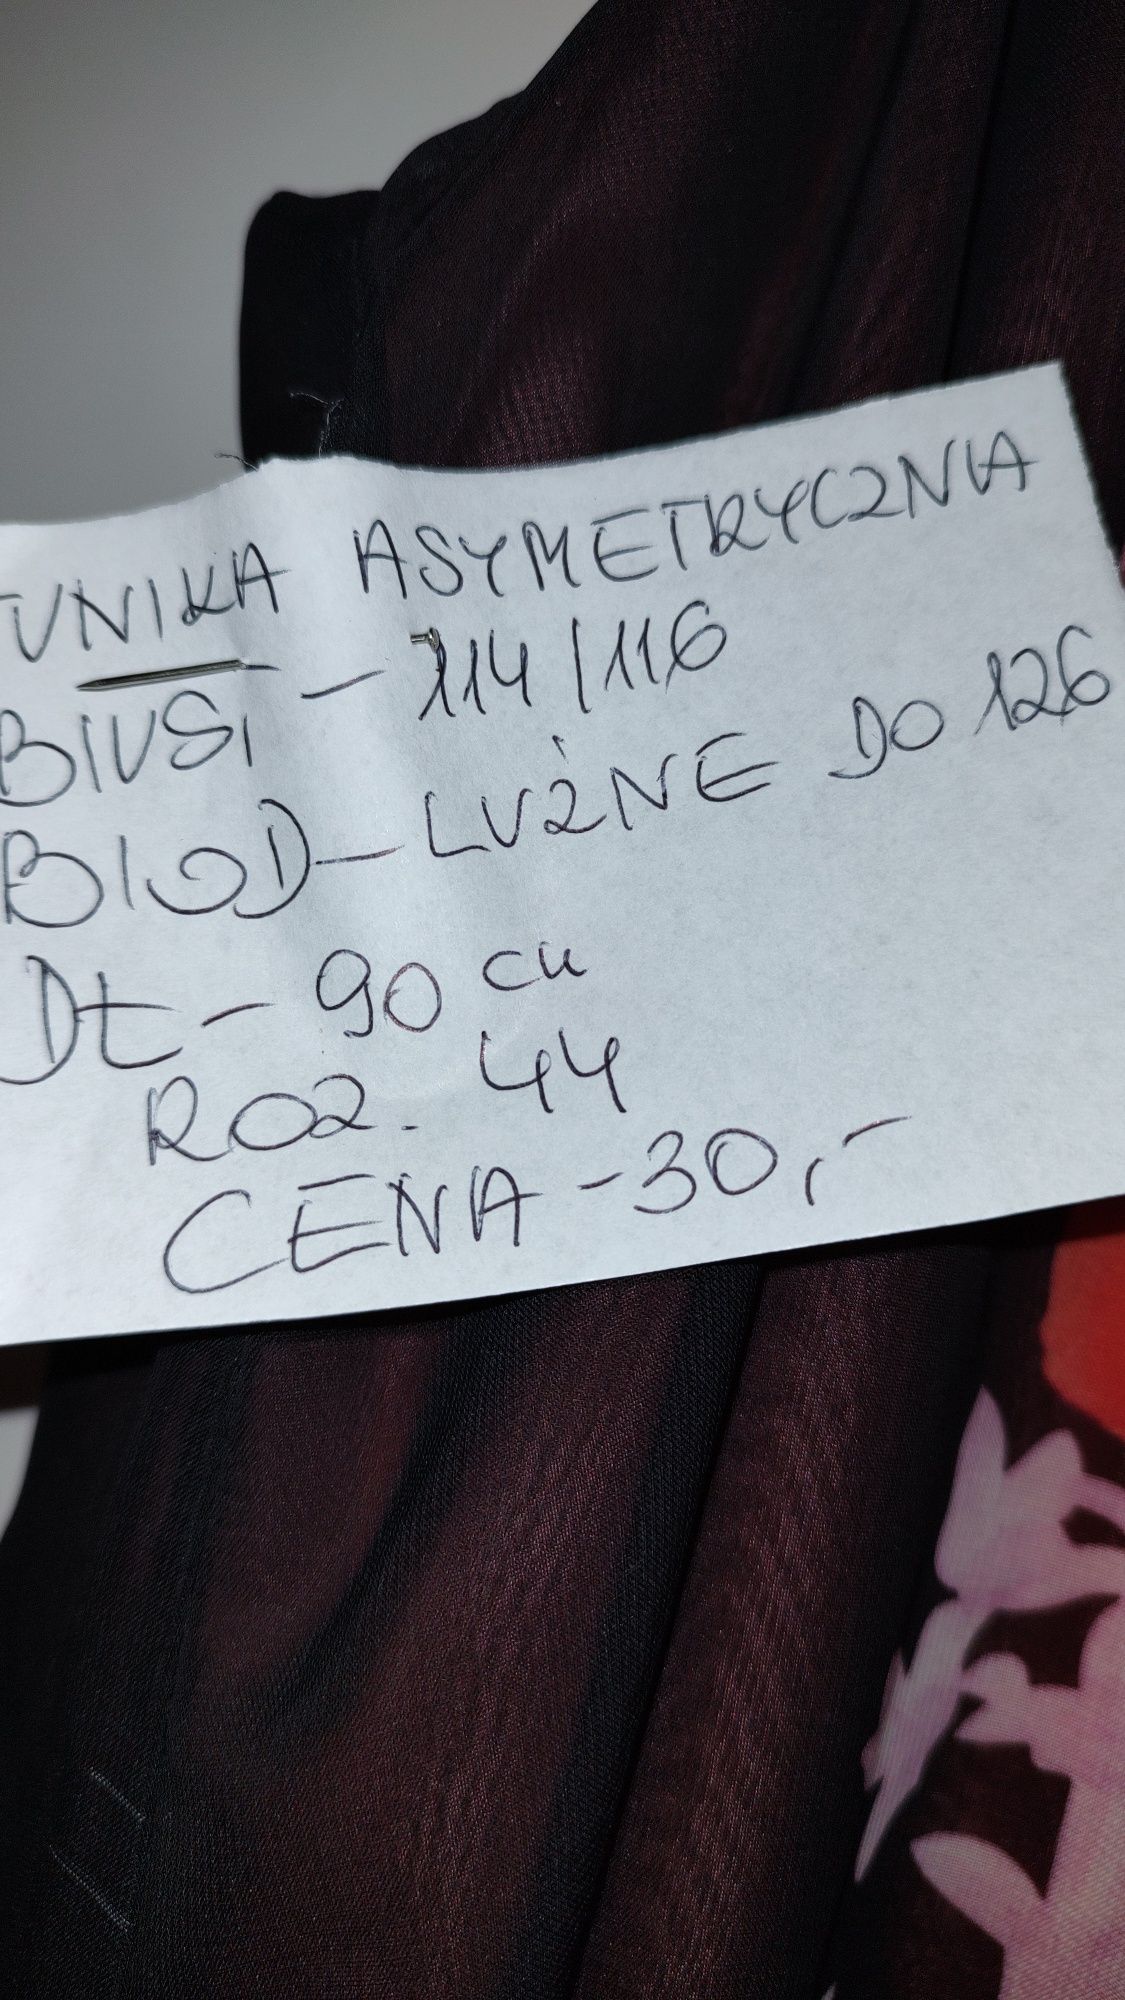 TUNIKA ASYMETRYCZNA
BIUST - 114/116
BIOD - LUŹNE DO 126
DŁ - 90 cm
ROZ. 44
CENA - 30,-